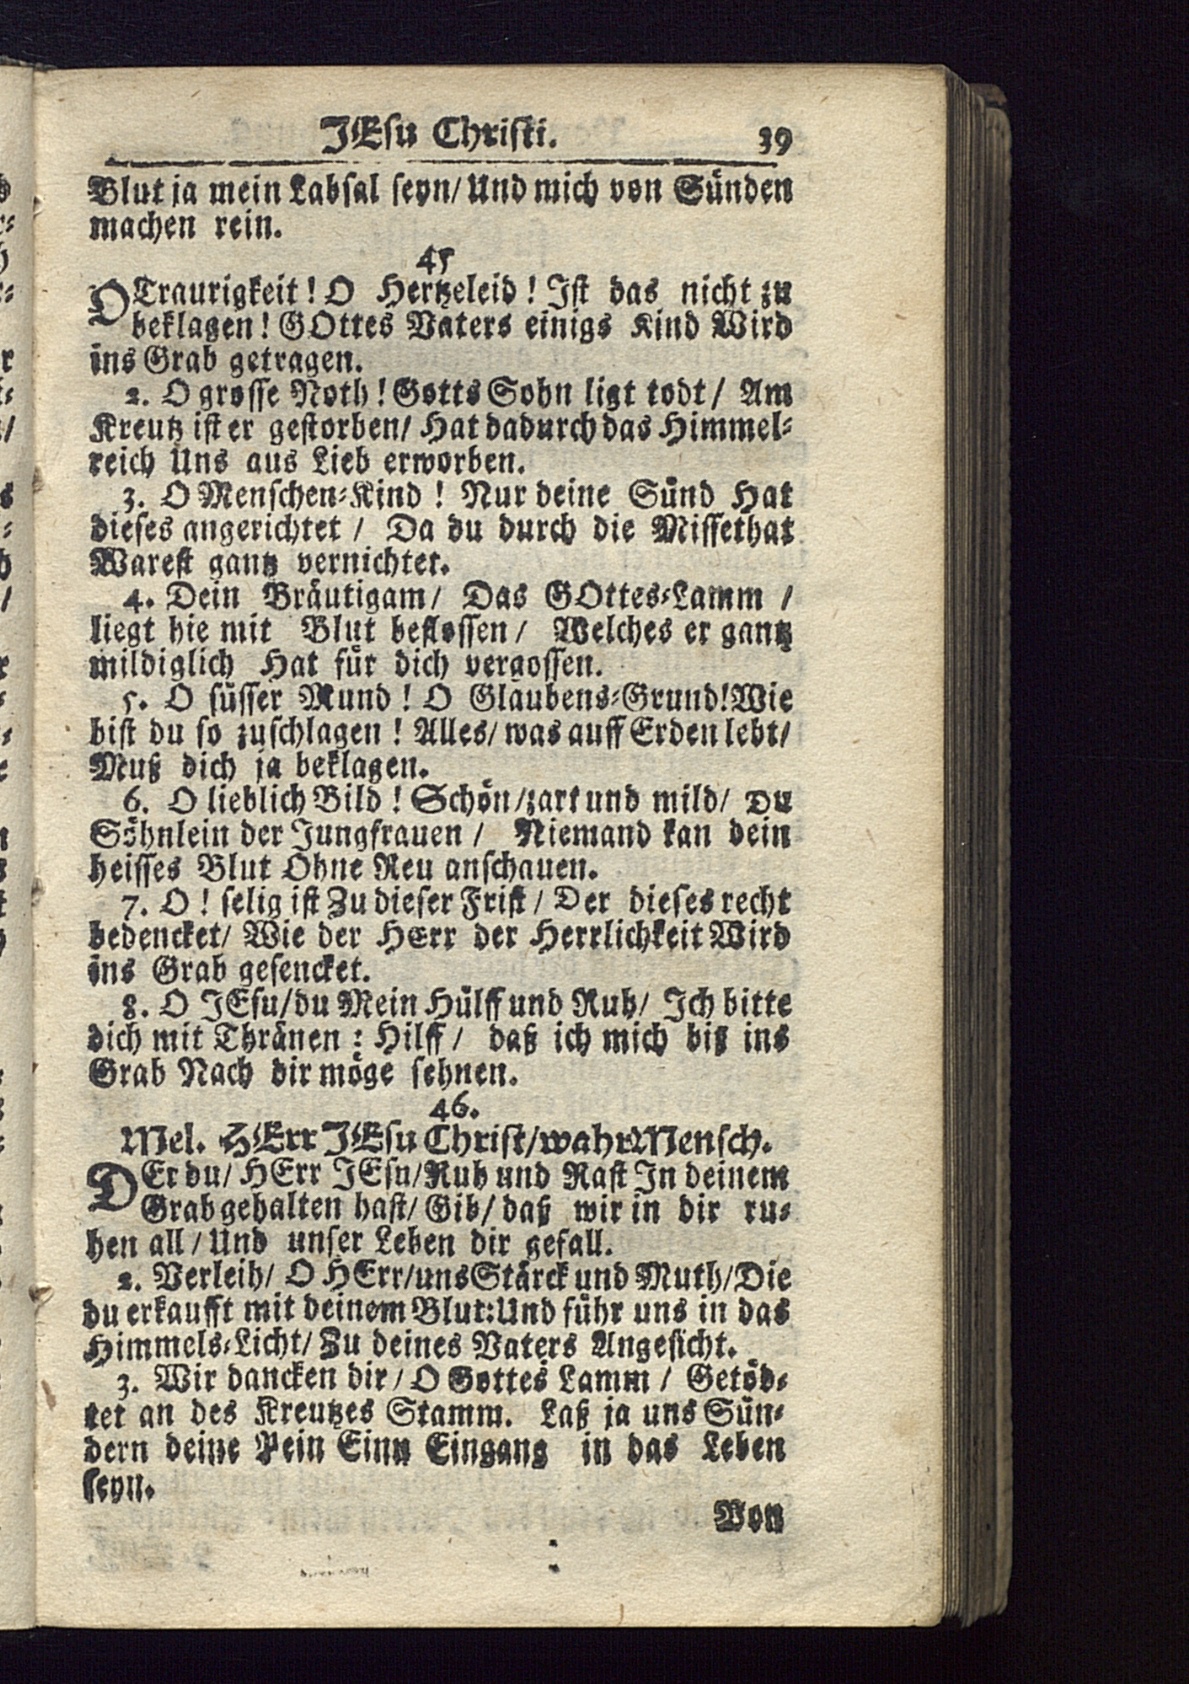 JEsu Christi. 39
Blut ja mein Labsal seyn/ Und mich von Sünden
machen rein.
45
O Traurigkeit! O Hertzeleid! Ist das nicht zu
beklagen! GOttes Vaters einigs Kind Wird
ins Grab getragen.
2. O grosse Noth! Gotts Sohn ligt todt/ Am
Kreutz ist er gestorben/ Hat dadurch das Himmel-
reich Uns aus Lieb erworben.
3. O Menschen-Kind! Nur deine Sünd Hat
dieses angerichtet / Da du durch die Missethat
Warest gantz vernichtet.
4. Dein Bräutigam/ Das GOttes-Lamm /
liegt hie mit Blut beflossen/ Welches er gantz
mildiglich Hat für dich vergossen.
5. O süsser Mund! O Glaubens-Grund! Wie
bist du so zuschlagen! Alles/ was auff Erden lebt/
Muß dich ja beklagen.
6. O lieblich Bild! Schön/zart und mild/ Du
Söhnlein der Jungfrauen / Niemand kan dein
heisses Blut Ohne Reu anschauen.
7. O! selig ist Zu dieser Frist/ Der dieses recht
bedencket/ Wie der HErr der Herrlichkeit Wird
ins Grab gesencket.
8. O JEsu/du Mein Hülff und Ruh/ Ich bitte
dich mit Thränen: Hilff/ daß ich mich biß ins
Grab Nach dir möge sehnen.
46.
Mel. HErr JEsu Christ/wahr Mensch.
DEr du/ HErr JEsu/Ruh und Rast In deinem
Grab gehalten hast/ Gib/ daß wir in dir ru-
hen all/ Und unser Leben dir gefall.
2. Verleih/ O HErr/uns Stärck und Muth/Die
du erkaufft mit deinem Blut: Und führ uns in das
Himmels-Licht/ Zu deines Vaters Angesicht.
3. Wir dancken dir/ O Gottes Lamm / Getöd-
tet an des Kreutzes Stamm. Laß ja uns Sün-
dern deine Pein Einn Eingang in das Leben
seyn.
Von